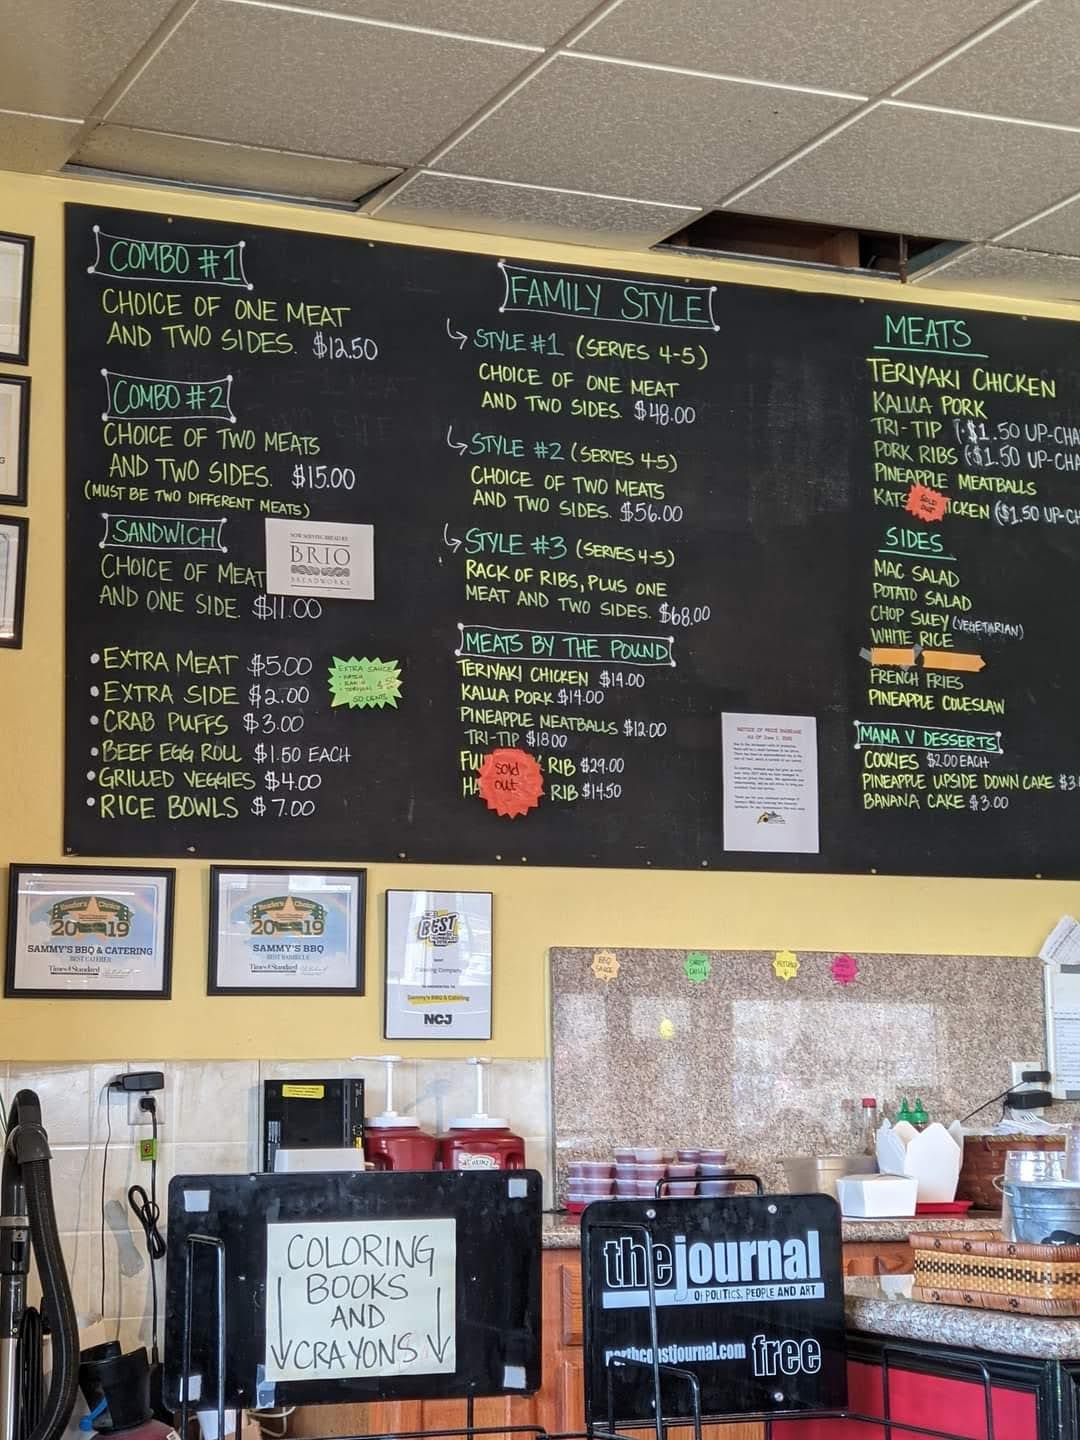 COMBO #1
CHOICE OF ONE MEAT
AND TWO SIDES. $12.50
COMBO #2
CHOICE OF TWO MEATS
AND TWO SIDES. $15.00
(MUST BE TWO DIFFERENT MEATS)
SANDWICH
CHOICE OF MEAT
AND ONE SIDE. $11.00
NOW SERVING BREAD BY
BRIO
BREADWORKS
• EXTRA MEAT $5.00
• EXTRA SIDE $2.00
• CRAB PUFFS $3.00
• BEEF EGG ROLL $1.50 EACH
• GRILLED VEGGIES $4.00
• RICE BOWLS $7.00
EXTRA SAUCE
50 CENTS
FAMILY STYLE
STYLE #1 (SERVES 4-5)
CHOICE OF ONE MEAT
AND TWO SIDES. $48.00
STYLE #2 (SERVES 4-5)
CHOICE OF TWO MEATS
AND TWO SIDES. $56.00
STYLE #3 (SERVES 4-5)
RACK OF RIBS, PLUS ONE
MEAT AND TWO SIDES. $68.00
MEATS BY THE POUND
TERIYAKI CHICKEN $14.00
KALUA PORK $14.00
PINEAPPLE MEATBALLS $12.00
TRI-TIP $18.00
FU RIB $29.00
HA RIB $14.50
Sold
out
NOTICE OF PRICE INCREASE
MEATS
TERIYAKI CHICKEN
KALUA PORK
TRI-TIP (+$1.50 UP-CHA
PORK RIBS (+$1.50 UP-CHA
PINEAPPLE MEATBALLS
KATS ICKEN (+$1.50 UP-CH
SOLD
OUT
SIDES
MAC SALAD
POTATO SALAD
CHOP SUEY (VEGETARIAN)
WHITE RICE
FRENCH FRIES
PINEAPPLE COLESLAW
MAMA V DESSERTS
COOKIES $2.00 EACH
PINEAPPLE UPSIDE DOWN CAKE $3.
BANANA CAKE $3.00
Reader's Choice
2019
SAMMY'S BBQ & CATERING
BEST CATERER
Times-Standard
Reader's Choice
2019
SAMMY'S BBQ
BEST BARBECUE
Times-Standard
BEST
Catering Company
Sammy's BBQ & Catering
NCJ
BBQ
SAUCE
HEINZ
COLORING
BOOKS
AND
CRAYONS
the journal
OF POLITICS, PEOPLE AND ART
northcoastjournal.com free